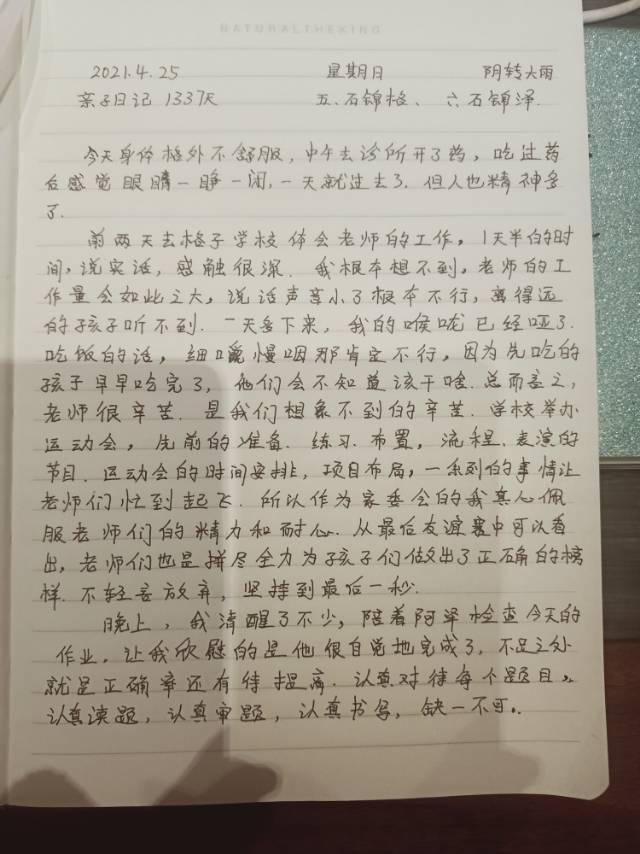 NATURALTHEKING
2021.4.25 星期日 阴转大雨
亲子日记 1337天 五.石锦格、六石锦泽.
今天身体格外不舒服,中午去诊所开了药,吃过药
后感觉眼睛一睁一闭,一天就过去了.但人也精神多
了.
前两天去格子学校体会老师的工作,1天半的时
间,说实话,感触很深.我根本想不到,老师的工
作量会如此之大,说话声音小了根本不行,离得远
的孩子听不到.一天多下来,我的喉咙已经哑了.
吃饭的话,细嚼慢咽那肯定不行,因为先吃的
孩子早早吃完了,他们会不知道该干啥.总而言之,
老师很辛苦.是我们想象不到的辛苦.学校举办
运动会,先前的准备.练习.布置,流程.表演的
节目.运动会的时间安排,项目布局,一系列的事情让
老师们忙到起飞.所以作为家委会的我真心佩
服老师们的精力和耐心.从最后友谊赛中可以看
出,老师们也是拼尽全力为孩子们做出了正确的榜
样.不轻言放弃,坚持到最后一秒.
晚上,我清醒了不少,陪着阿泽检查今天的
作业,让我欣慰的是他很自觉地完成了,不足之处
就是正确率还有待提高.认真对待每个题目,
认真读题,认真审题,认真书写,缺一不可.